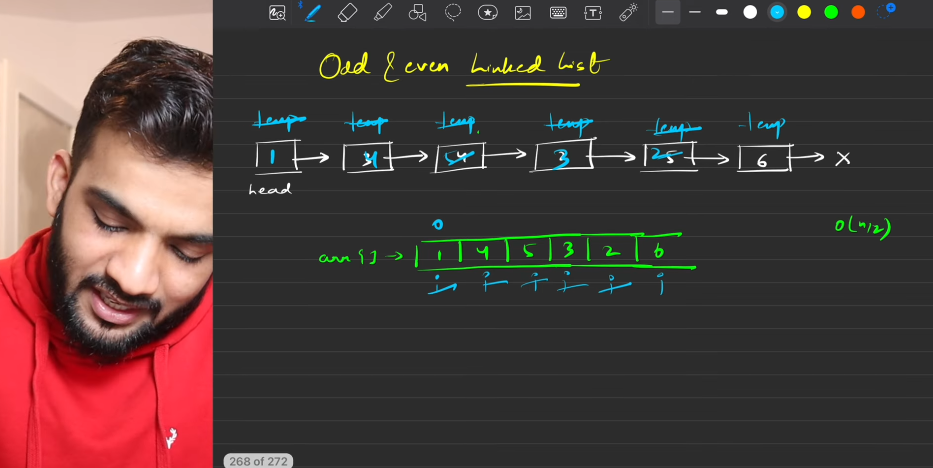 T
Odd & even Linked List
temp temp temp temp temp temp
1 3 6 X
head
0
O(n/2)
arr[] → 1 4 5 3 2 6
i i i i i i
268 of 272